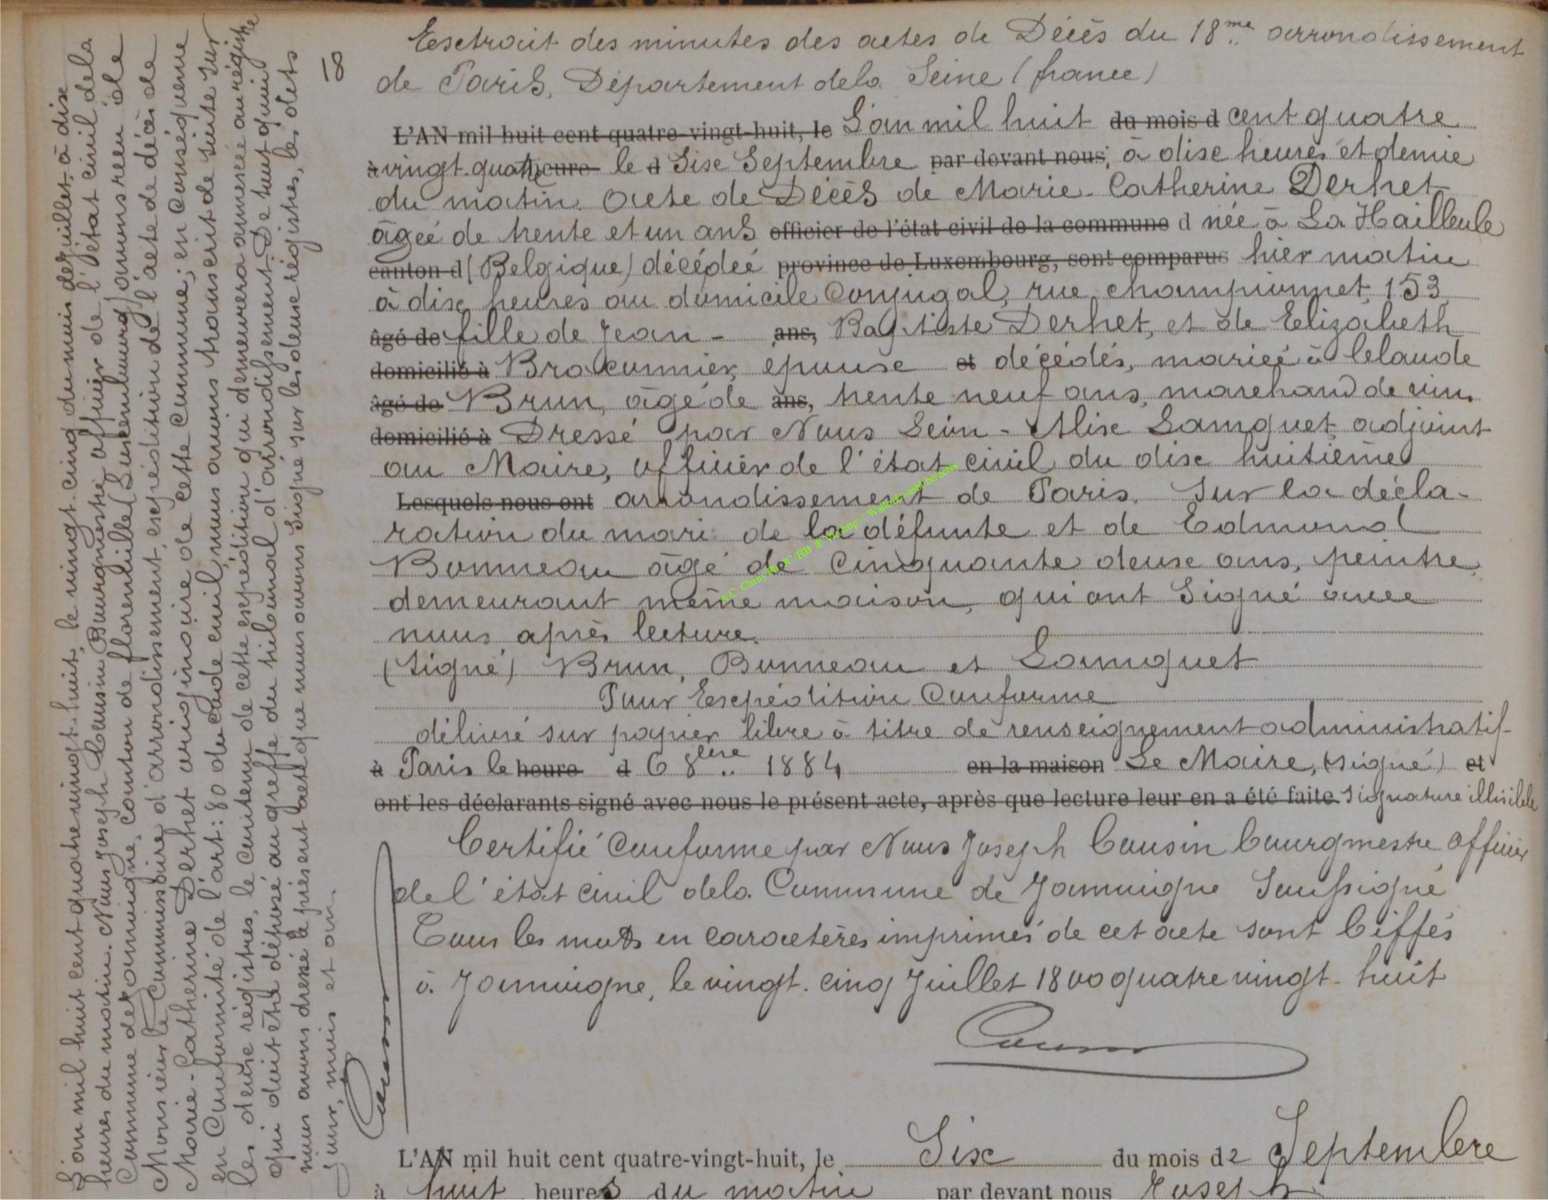 18
Extrait des minutes des actes de Décès du 18me arrondissement
de Paris, Département dela Seine (france)
L'AN mil huit cent quatre-vingt-huit, le L'an mil huit du mois d cent quatre
à vingt-quatre heure le d Six Septembre par devant nous, à dix heures et demie
du matin. Acte de Décès de Marie-Catherine Derhet
âgée de trente et un ans officier de l'état civil de la commune d née à La Hailleule
canton d (Belgique) décédée province de Luxembourg, sont comparus hier matin
à dix heures au domicile Conjugal, rue championnet, 153
âgé de fille de Jean- ans, Baptiste Derhet, et de Elizabeth
domicilié à Braconnier, epouse et décédés, mariée à Claude
âgé de Brun, âgé de ans, trente neuf ans, marchand de vin.
domicilié à Dressé par Nous Léon-Alix Lamquet adjoint
au Maire, officier de l'état civil du dix huitième
Lesquels nous ont arrondissement de Paris. Sur la décla-
ration du mari de la défunte et de Edmond
Bonneau âgé de Cinquante deux ans, peintre,
demeurant même maison, qui ont Signé avec
nous après lecture.
(Signé) Brun, Bonneau et Lamquet
Pour Expédition Conforme
délivré sur papier libre à titre de renseignement administratif
à Paris le heure d 6 8bre 1884 en la maison Le Maire, (signé) et
ont les déclarants signé avec nous le présent acte, après que lecture leur en a été faite. Signature illisible
Certifié Conforme par Nous Joseph Cousin bourgmestre officier
de l'état civil dela Commune de Jamoigne Soussigné
Tous les mots en caractères imprimés de cet acte sont biffés
à Jamoigne, le vingt-cinq Juillet 1800 quatre vingt-huit
Cousin
L'an mil huit cent quatre vingt-huit, le vingt-cinq du mois de juillet, à dix
heures du matin. Nous Joseph Cousin Bourgmestre officier de l'état civil dela
Commune de Jamoigne, Canton de florenville (Luxembourg) avons reçu de
Monsieur le Commissaire d'arrondissement, expédition de l'acte de décès de
Marie-Catherine Derhet originaire de cette Commune; en conséquence
en Conformité de l'art: 80 du Code civil nous avons transcrit de suite sur
les deux régistres, le contenu de cette expédition qui demeurera annexée au régistre
qui doit être déposé au greffe du tribunal d'arrondissement. De tout quoi
nous avons dressé le présent acte que nous avons signé sur les deux régistres, les dits
jour, mois et an.
Cousin
L'AN mil huit cent quatre-vingt-huit, le Six du mois de Septembre
à huit heures du matin par devant nous Joseph